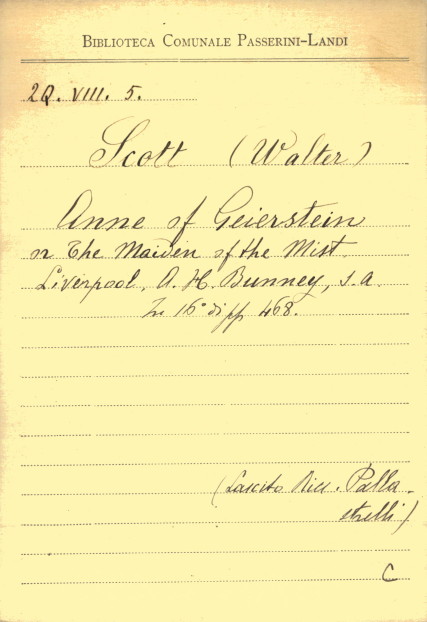 BIBLIOTECA COMUNALE PASSERINI-LANDI
2Q. VIII. 5.
Scott (Walter)
Anne of Geierstein
or The Maiden of the Mist.
Liverpool, A. H. Bunney, s.a.
In 16° di pp 468.
(Lascito Ricc. Palla-
strelli)
C